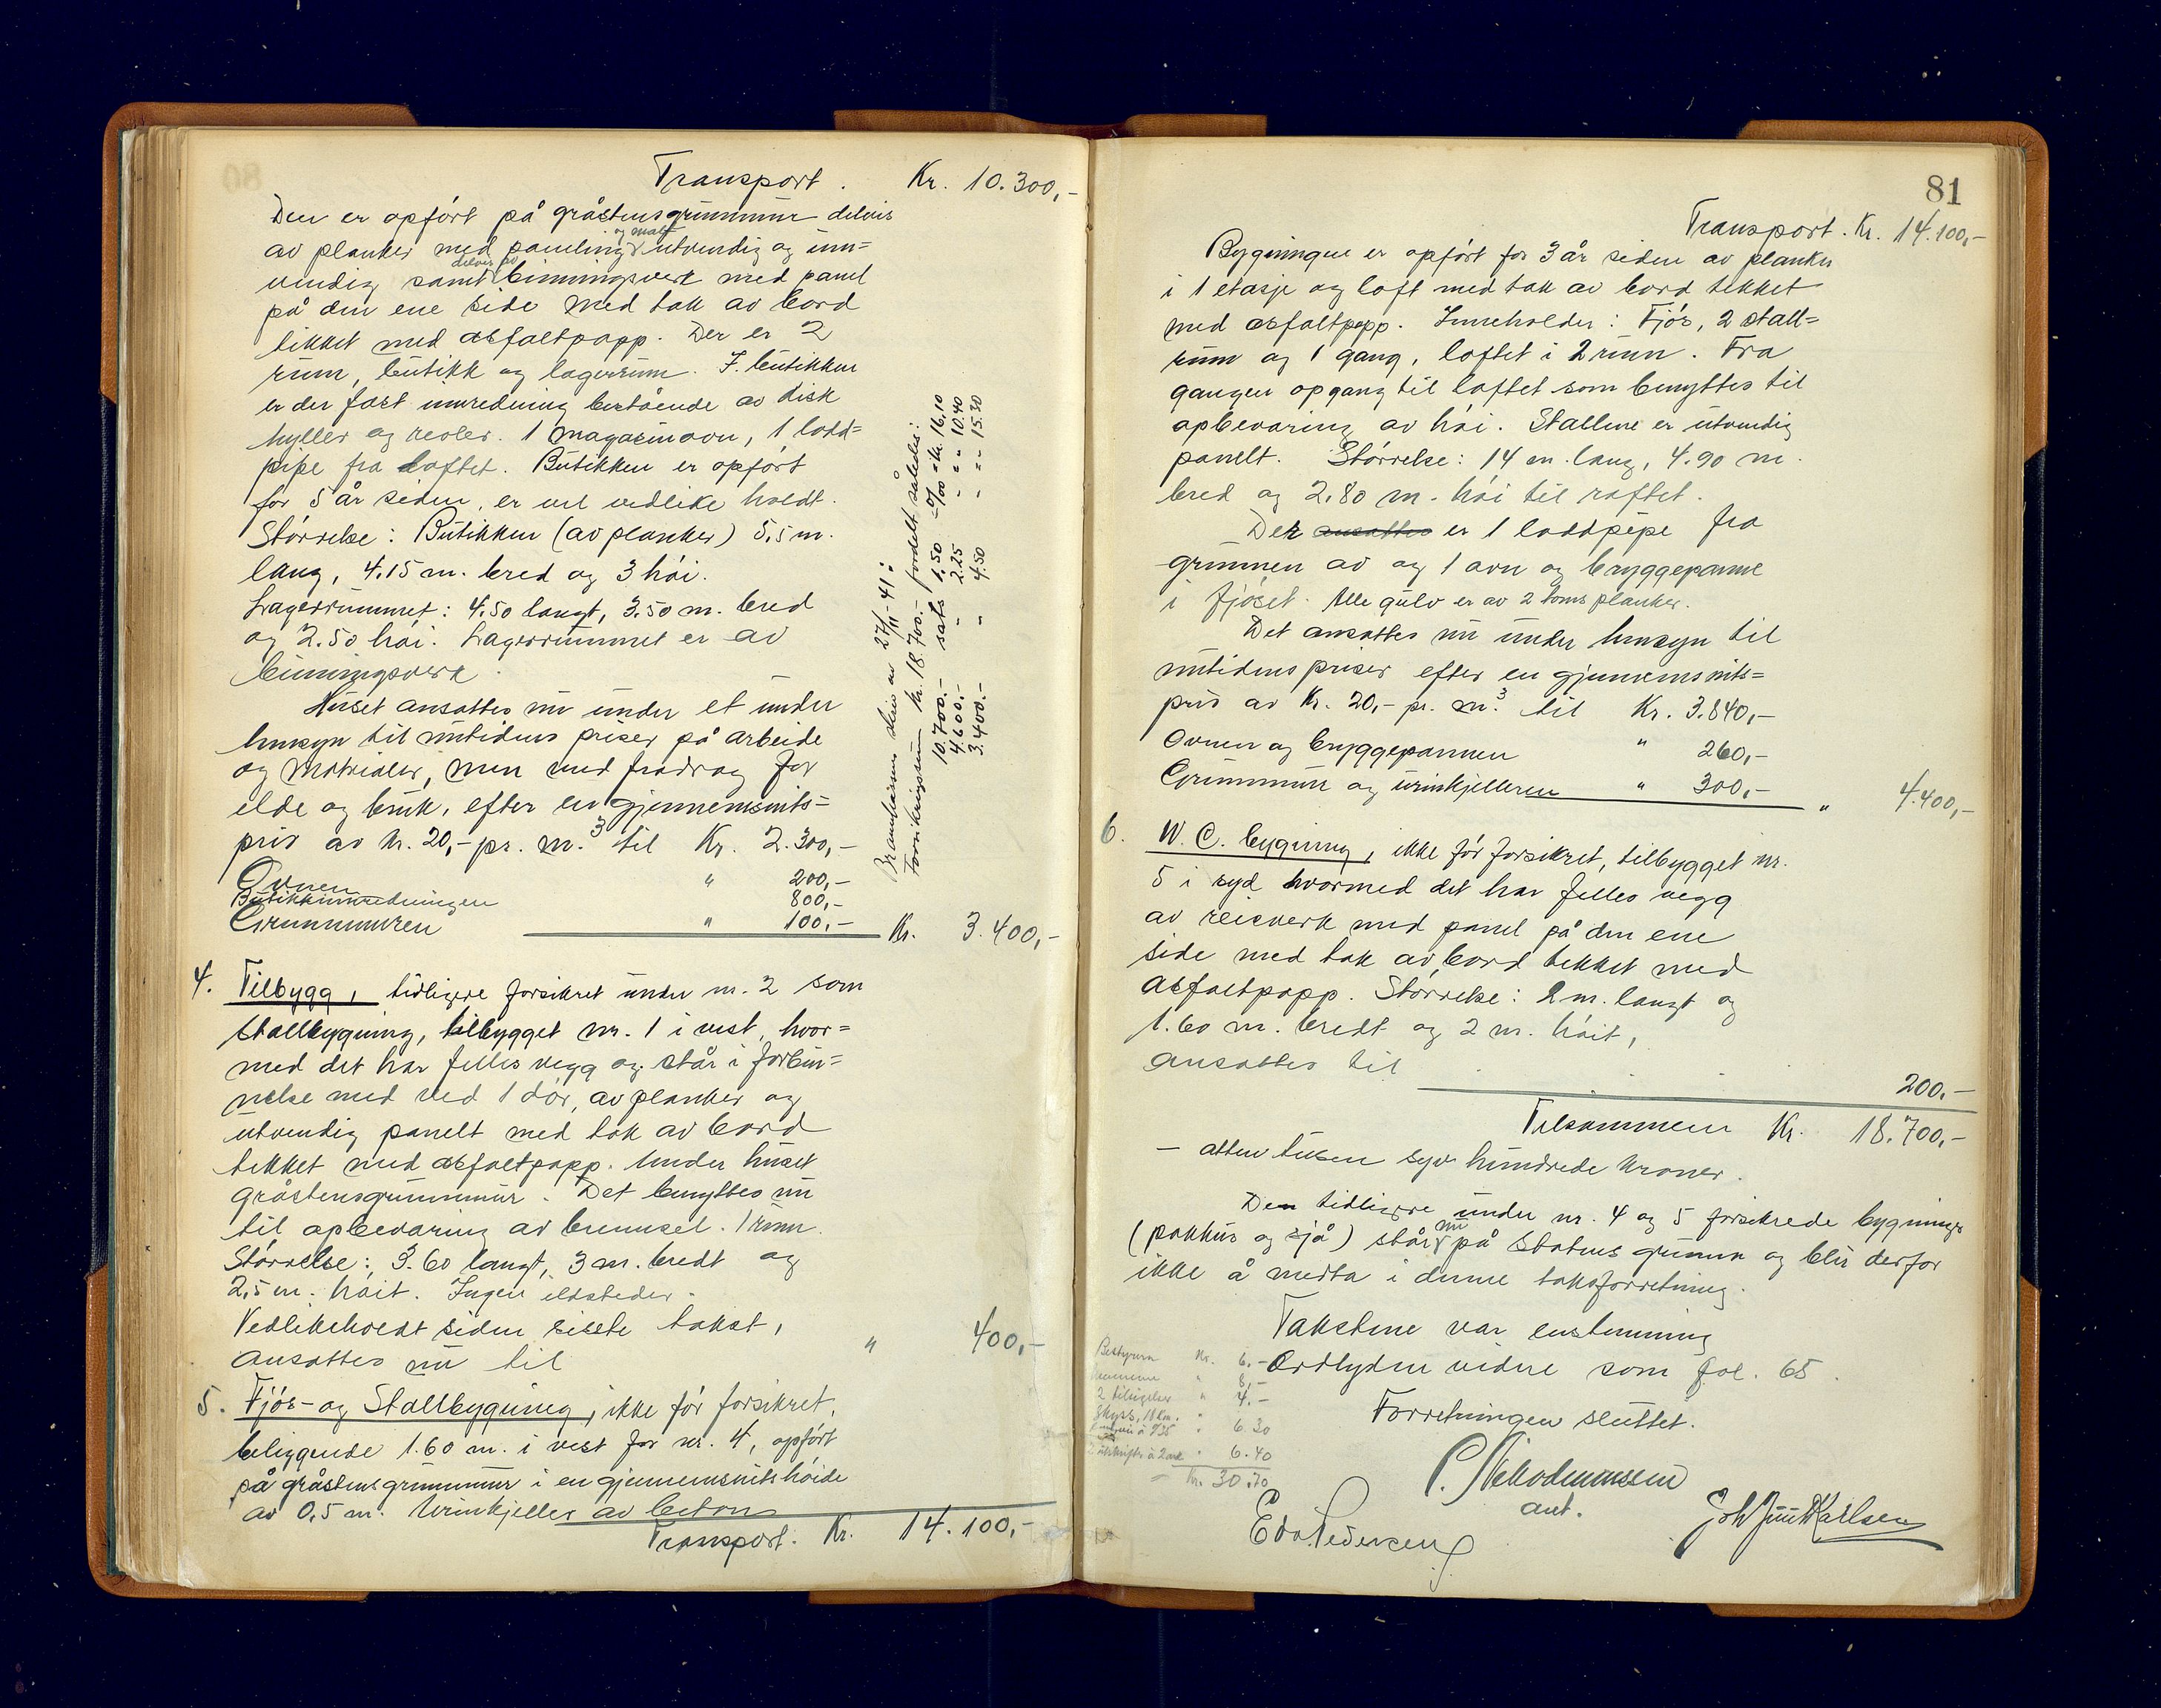 Transport. Kr. 10.300,-
Den er opført på gråstensgrunnmur delvis
av planker med paneling og malt utvendig og inn=
vendig samt delvis av binningsverk med panel
på den ene side med tak av bord
tekket med asfaltpapp. Der er 2
rum, butikk og lagerrum. I butikken
er der fast innredning bestående av disk
hyller og reoler. 1 magasinovn, 1 lodd=
pipe fra loftet. Butikken er opført
for 5 år siden, er vel vedlike holdt.
Størrelse: Butikken (av planker) 5,5 m.
lang, 4.15 m. bred og 3 høi.
Lagerrummet: 4.50 langt, 3.50 m. bred
og 2.50 høi. Lagerrummet er av
binningsverk.
Huset ansattes nu under et under
hensyn til nutidens priser på arbeide
og materialer, men med fradrag for
elde og bruk, efter en gjennemsnits=
pris av kr. 20,- pr. m.³ til Kr. 2.300,-
Ovnen " 200,-
Butikkinnredningen 800,-
Grunnmuren " 100,- Kr. 3.400,-
4. Tilbygg, tidligere forsikret under nr. 2 som
stallbygning, tilbygget nr. 1 i vest, hvor=
med det har felles vegg og står i forbin=
nelse med ved 1 dør, av planker og
utvendig panelt med tak av bord
tekket med asfaltpapp. Under huset
gråstensgrunnmur. Det benyttes nu
til opbevaring av brensel. 1 rum.
Størrelse: 3.60 langt, 3 m. bredt og
2,5 m. høit. Ingen ildsteder.
Vedlikeholdt siden siste takst,
ansattes nu til " 400,-
5. Fjøs- og Stallbygning, ikke før forsikret,
beliggende 1.60 m. i vest for nr. 4, opført
på gråstensgrunnmur i en gjennemsnitshøide
av 0,5 m. Urinkjeller av betong
Transport. Kr. 14.100,-
Brannkassens skriv av 27/11-41:
Forsikringssum kr. 18.700.- fordelt således:
10.700.- sats 1,50 0/00 = kr. 16,10
4.600.- " 2.25 " = " 10.40
3.400.- " 4.50 " = " 15.30
81
Transport. Kr. 14.100,-
Bygningen er opført for 3 år siden av planker
i 1 etasje og loft med tak av bord tekket
med asfaltpapp. Inneholder: Fjøs, 2 stall=
rum og 1 gang, loftet i 2 rum. Fra
gangen opgang til loftet som benyttes til
opbevaring av høi. Stallene er utvendig
panelt. Størrelse: 14 m. lang, 4.90 m.
bred og 2.80 m. høi til raftet.
Der ansattes er 1 loddpipe fra
grunnen av og 1 ovn og bryggepanne
i fjøset. Alle gulv er av 2 toms planker.
Det ansattes nu under hensyn til
nutidens priser efter en gjennemsnits=
pris av Kr. 20,- pr. m.³ til Kr. 3.840,-
Ovnen og bryggepannen " 260,-
Grunnmur og urinkjelleren " 300,- " 4.400,-
6. W. C. bygning, ikke før forsikret, tilbygget nr.
5 i syd hvormed det har felles vegg
av reisverk med panel på den ene
side med tak av bord tekket med
asfaltpapp. Størrelse: 2 m. langt og
1.60 m. bredt og 2 m. høit,
ansattes til 200,-
Tilsammen Kr. 18.700,-
- atten tusen syv hundrede kroner.
Den tidligere under nr. 4 og 5 forsikrede bygninger
(pakkhus og sjå) står nu på Statens grunn og blir derfor
ikke å medta i denne taksforretning.
Takstene var enstemmig
Ordlyden videre som fol. 65.
Forretningen sluttet.
Bestyrern Kr. 6,-
" 8,-
2 tilsigelser " 4.-
Skyss, 18 km. "
" 6.30
2 utskrifter " 6.40
Kr. 30.70
P. Nikodemussen
ant.
Edv. Pedersen
Joh Juul Karlsen